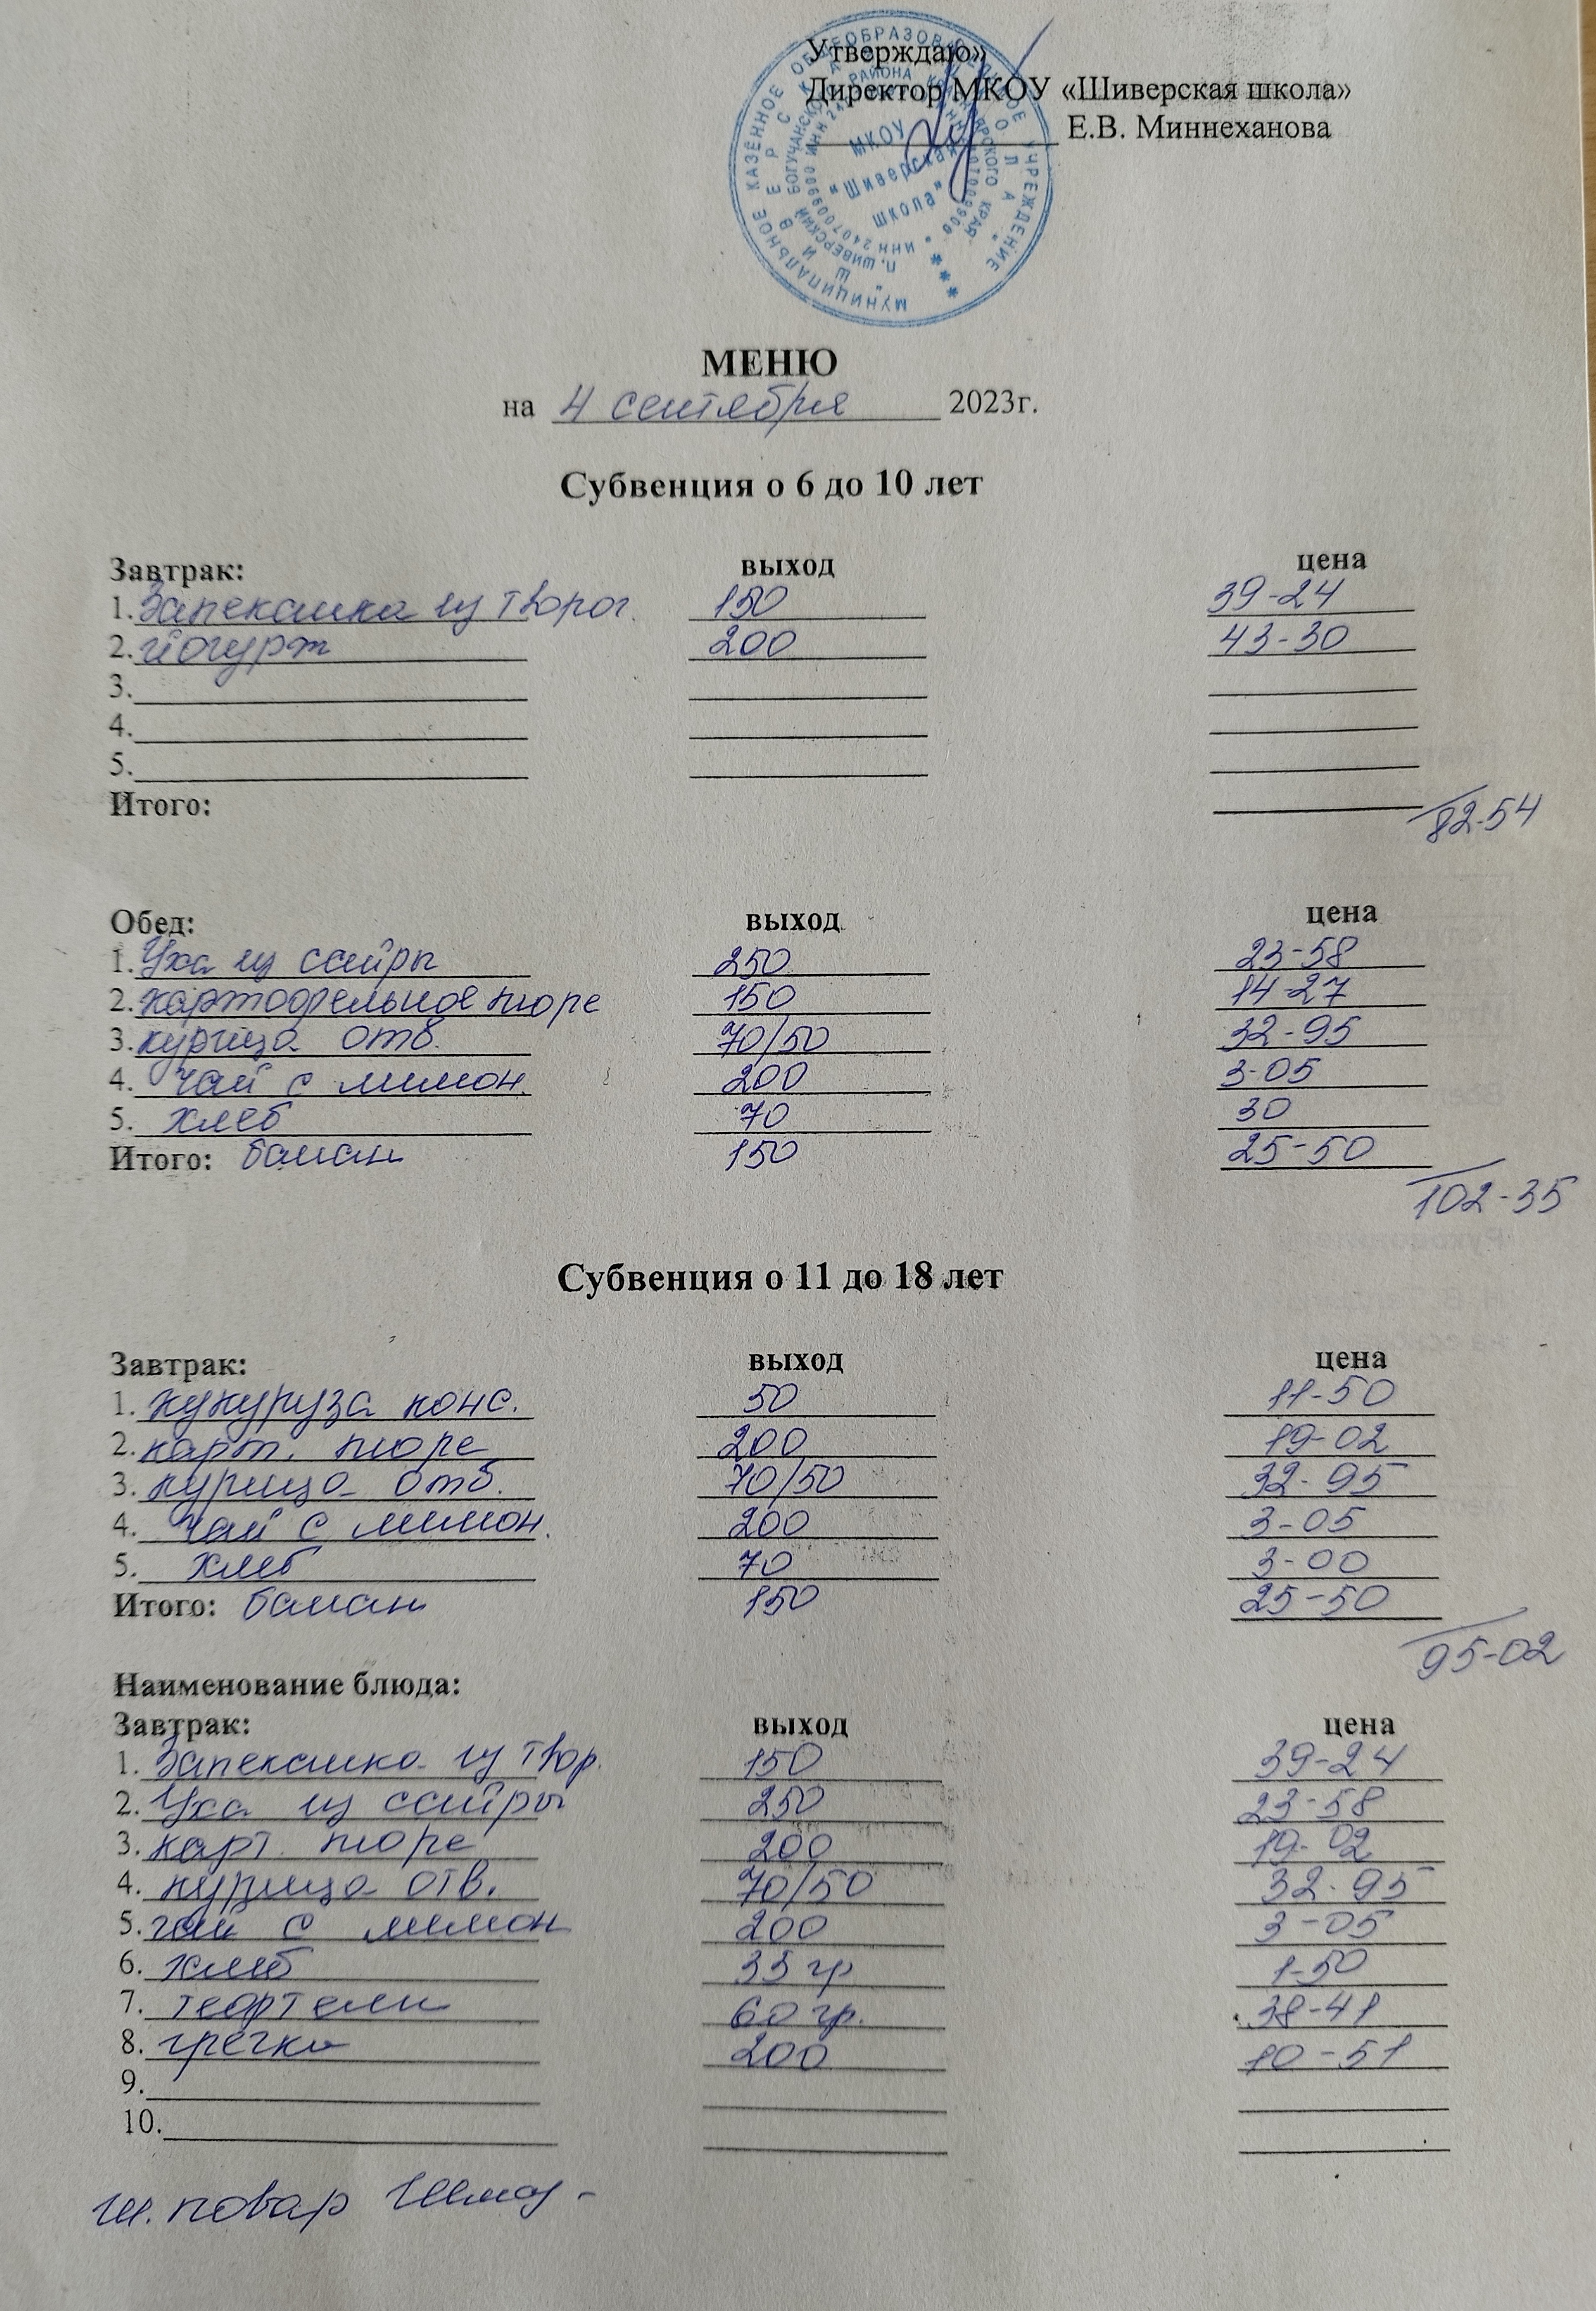 Утверждаю»
Директор МКОУ «Шиверская школа»
Е.В. Миннеханова
МУНИЦИПАЛЬНОЕ КАЗЁННОЕ ОБЩЕОБРАЗОВАТЕЛЬНОЕ УЧРЕЖДЕНИЕ
МКОУ
"Шиверская
школа"
МЕНЮ
на 4 сентября 2023г.
Субвенция о 6 до 10 лет
Завтрак: выход цена
1. Запеканка из творог. 150 39-24
2. йогурт 200 43-30
3.
4.
5.
Итого: 82-54
Обед: выход цена
1. Уха из сайры 250 23-58
2. картофельное пюре 150 14-27
3. курица отв. 70/50 32-95
4. чай с лимон. 200 3-05
5. хлеб 70 30
Итого: банан 150 25-50
102-35
Субвенция о 11 до 18 лет
Завтрак: выход цена
1. кукуруза конс. 50 11-50
2. карт. пюре 200 19-02
3. курица отв. 70/50 32-95
4. чай с лимон. 200 3-05
5. хлеб 70 3-00
Итого: банан 150 25-50
95-02
Наименование блюда:
Завтрак: выход цена
1. Запеканка из твор. 150 39-24
2. Уха из сайры 250 23-58
3. карт. пюре 200 19-02
4. курица отв. 70/50 32-95
5. чай с лимон 200 3-05
6. хлеб 35 гр 1-50
7. тефтели 60 гр. 38-41
8. гречка 200 10-51
9.
10.
ш. повар